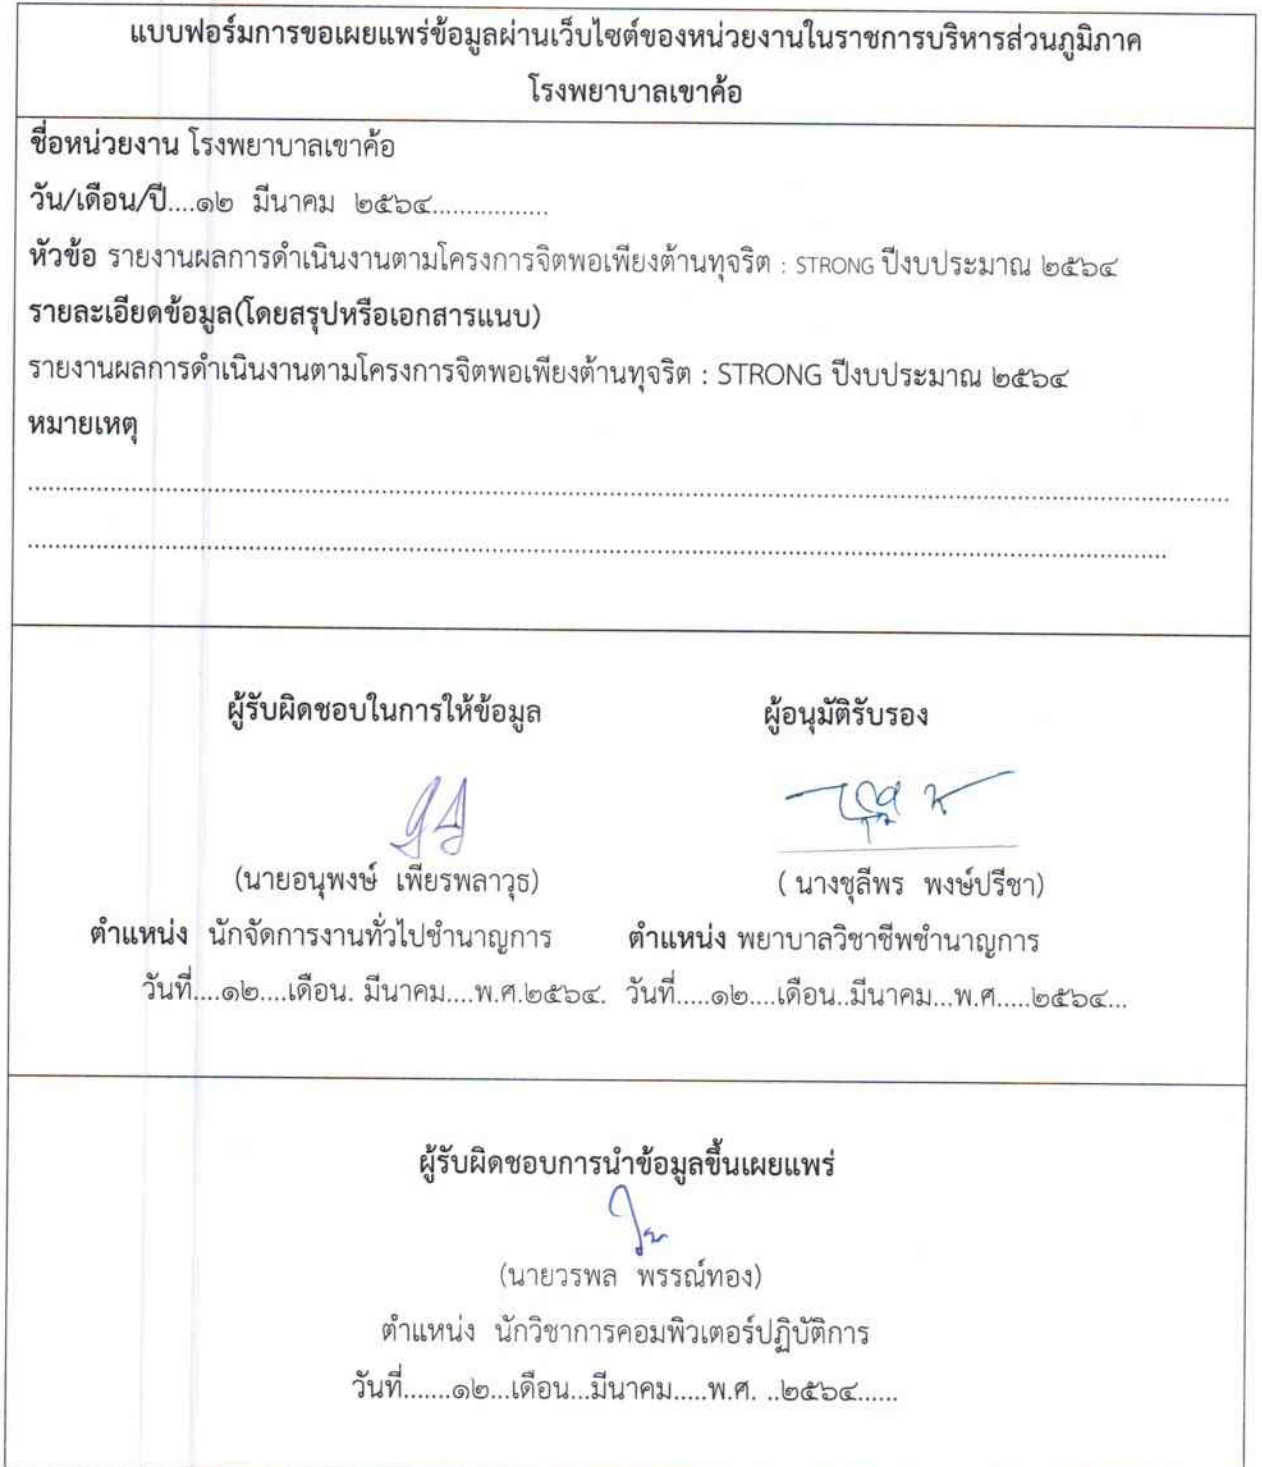 แบบฟอร์มการขอเผยแพร่ข้อมูลผ่านเว็บไซต์ของหน่วยงานในราชการบริหารส่วนภูมิภาค
โรงพยาบาลเขาค้อ
ชื่อหน่วยงาน โรงพยาบาลเขาค้อ
วัน/เดือน/ปี....๑๒ มีนาคม ๒๕๖๔.................
หัวข้อ รายงานผลการดำเนินงานตามโครงการจิตพอเพียงต้านทุจริต : STRONG ปีงบประมาณ ๒๕๖๔
รายละเอียดข้อมูล(โดยสรุปหรือเอกสารแนบ)
รายงานผลการดำเนินงานตามโครงการจิตพอเพียงต้านทุจริต : STRONG ปีงบประมาณ ๒๕๖๔
หมายเหตุ
ผู้รับผิดชอบในการให้ข้อมูล ผู้อนุมัติรับรอง
(นายอนุพงษ์ เพียรพลาวุธ) ( นางชุลีพร พงษ์ปรีชา)
ตำแหน่ง นักจัดการงานทั่วไปชำนาญการ ตำแหน่ง พยาบาลวิชาชีพชำนาญการ
วันที่....๑๒....เดือน. มีนาคม....พ.ศ.๒๕๖๔. วันที่.....๑๒....เดือน..มีนาคม...พ.ศ.....๒๕๖๔...
ผู้รับผิดชอบการนำข้อมูลขึ้นเผยแพร่
(นายวรพล พรรณ์ทอง)
ตำแหน่ง นักวิชาการคอมพิวเตอร์ปฏิบัติการ
วันที่.......๑๒...เดือน...มีนาคม.....พ.ศ. ..๒๕๖๔......